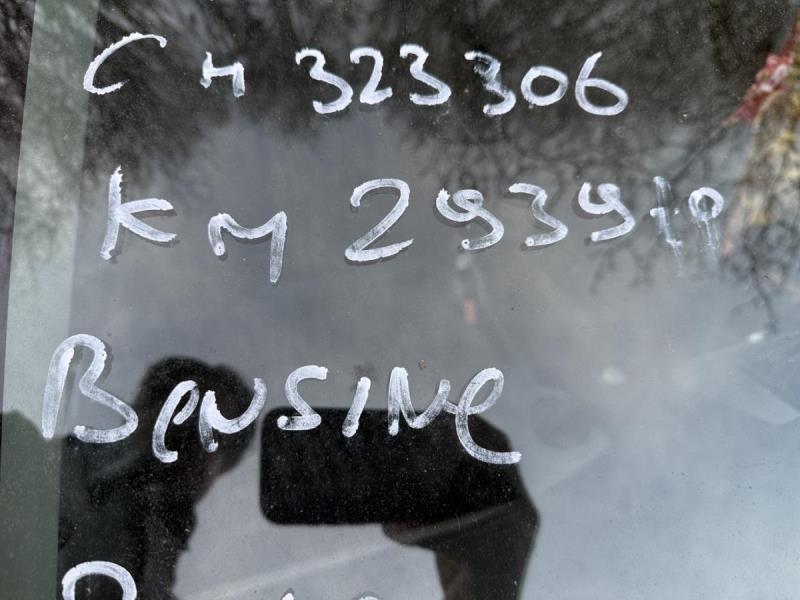 CH 323306
KM 2939
BENSINE